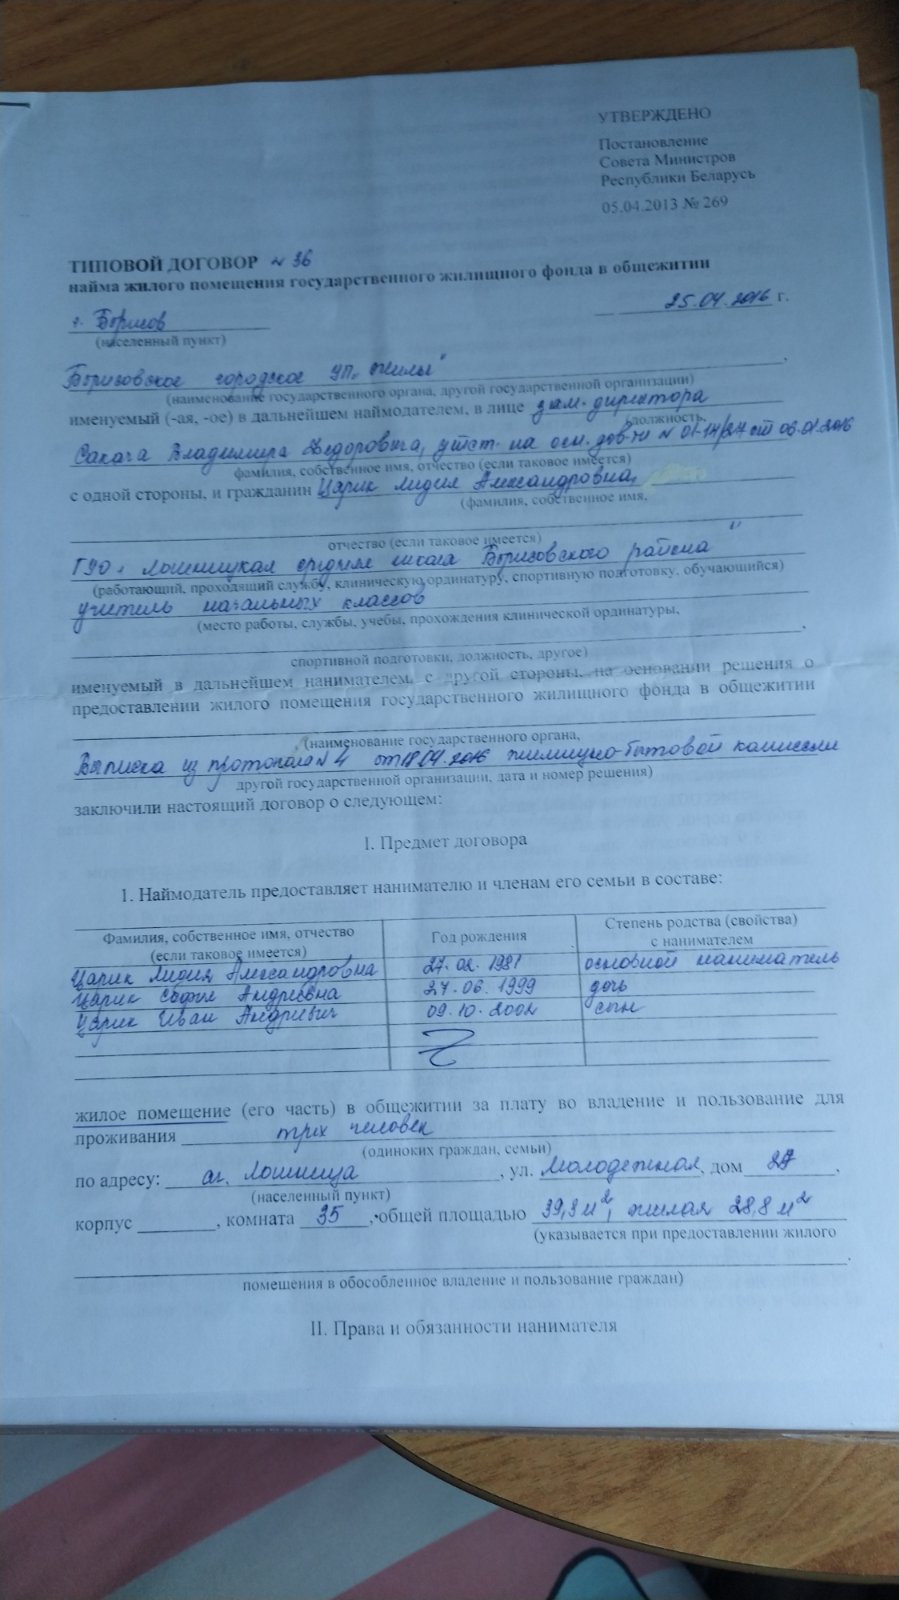 УТВЕРЖДЕНО
Постановление
Совета Министров
Республики Беларусь
05.04.2013 № 269
ТИПОВОЙ ДОГОВОР № 36
найма жилого помещения государственного жилищного фонда в общежитии
г. Борисов 25.04.2016 г.
(населенный пункт)
Борисовское городское УП "Жилье",
(наименование государственного органа, другой государственной организации)
именуемый (-ая, -ое) в дальнейшем наймодателем, в лице зам. директора
(должность,
Владимира Федоровича, на осн. дов-ти № 01-14/27 от 06.01.2016
фамилия, собственное имя, отчество (если таковое имеется)
с одной стороны, и гражданин Царик Лидия Александровна,
(фамилия, собственное имя,
отчество (если таковое имеется)
ГУО "Лошницкая средняя школа Борисовского района"
(работающий, проходящий службу, клиническую ординатуру, спортивную подготовку, обучающийся)
учитель начальных классов
(место работы, службы, учебы, прохождения клинической ординатуры,
спортивной подготовки, должность, другое)
именуемый в дальнейшем нанимателем, с другой стороны, на основании решения о
предоставлении жилого помещения государственного жилищного фонда в общежитии
(наименование государственного органа,
Выписка из протокола № 4 от 18.04.2016 жилищно-бытовой комиссии
другой государственной организации, дата и номер решения)
заключили настоящий договор о следующем:
I. Предмет договора
1. Наймодатель предоставляет нанимателю и членам его семьи в составе:
Фамилия, собственное имя, отчество (если таковое имеется) Год рождения Степень родства (свойства) с нанимателем
Царик Лидия Александровна 27.02.1981 основной наниматель
Царик София Андреевна 27.06.1999 дочь
Царик Иван Андреевич 09.10.2002 сын
жилое помещение (его часть) в общежитии за плату во владение и пользование для
проживания трех человек
(одиноких граждан, семьи)
по адресу: аг. Лошница, ул. Молодежная, дом 27,
(населенный пункт)
корпус , комната 35, общей площадью 39,3 м², жилая 28,8 м²
(указывается при предоставлении жилого
помещения в обособленное владение и пользование граждан)
II. Права и обязанности нанимателя